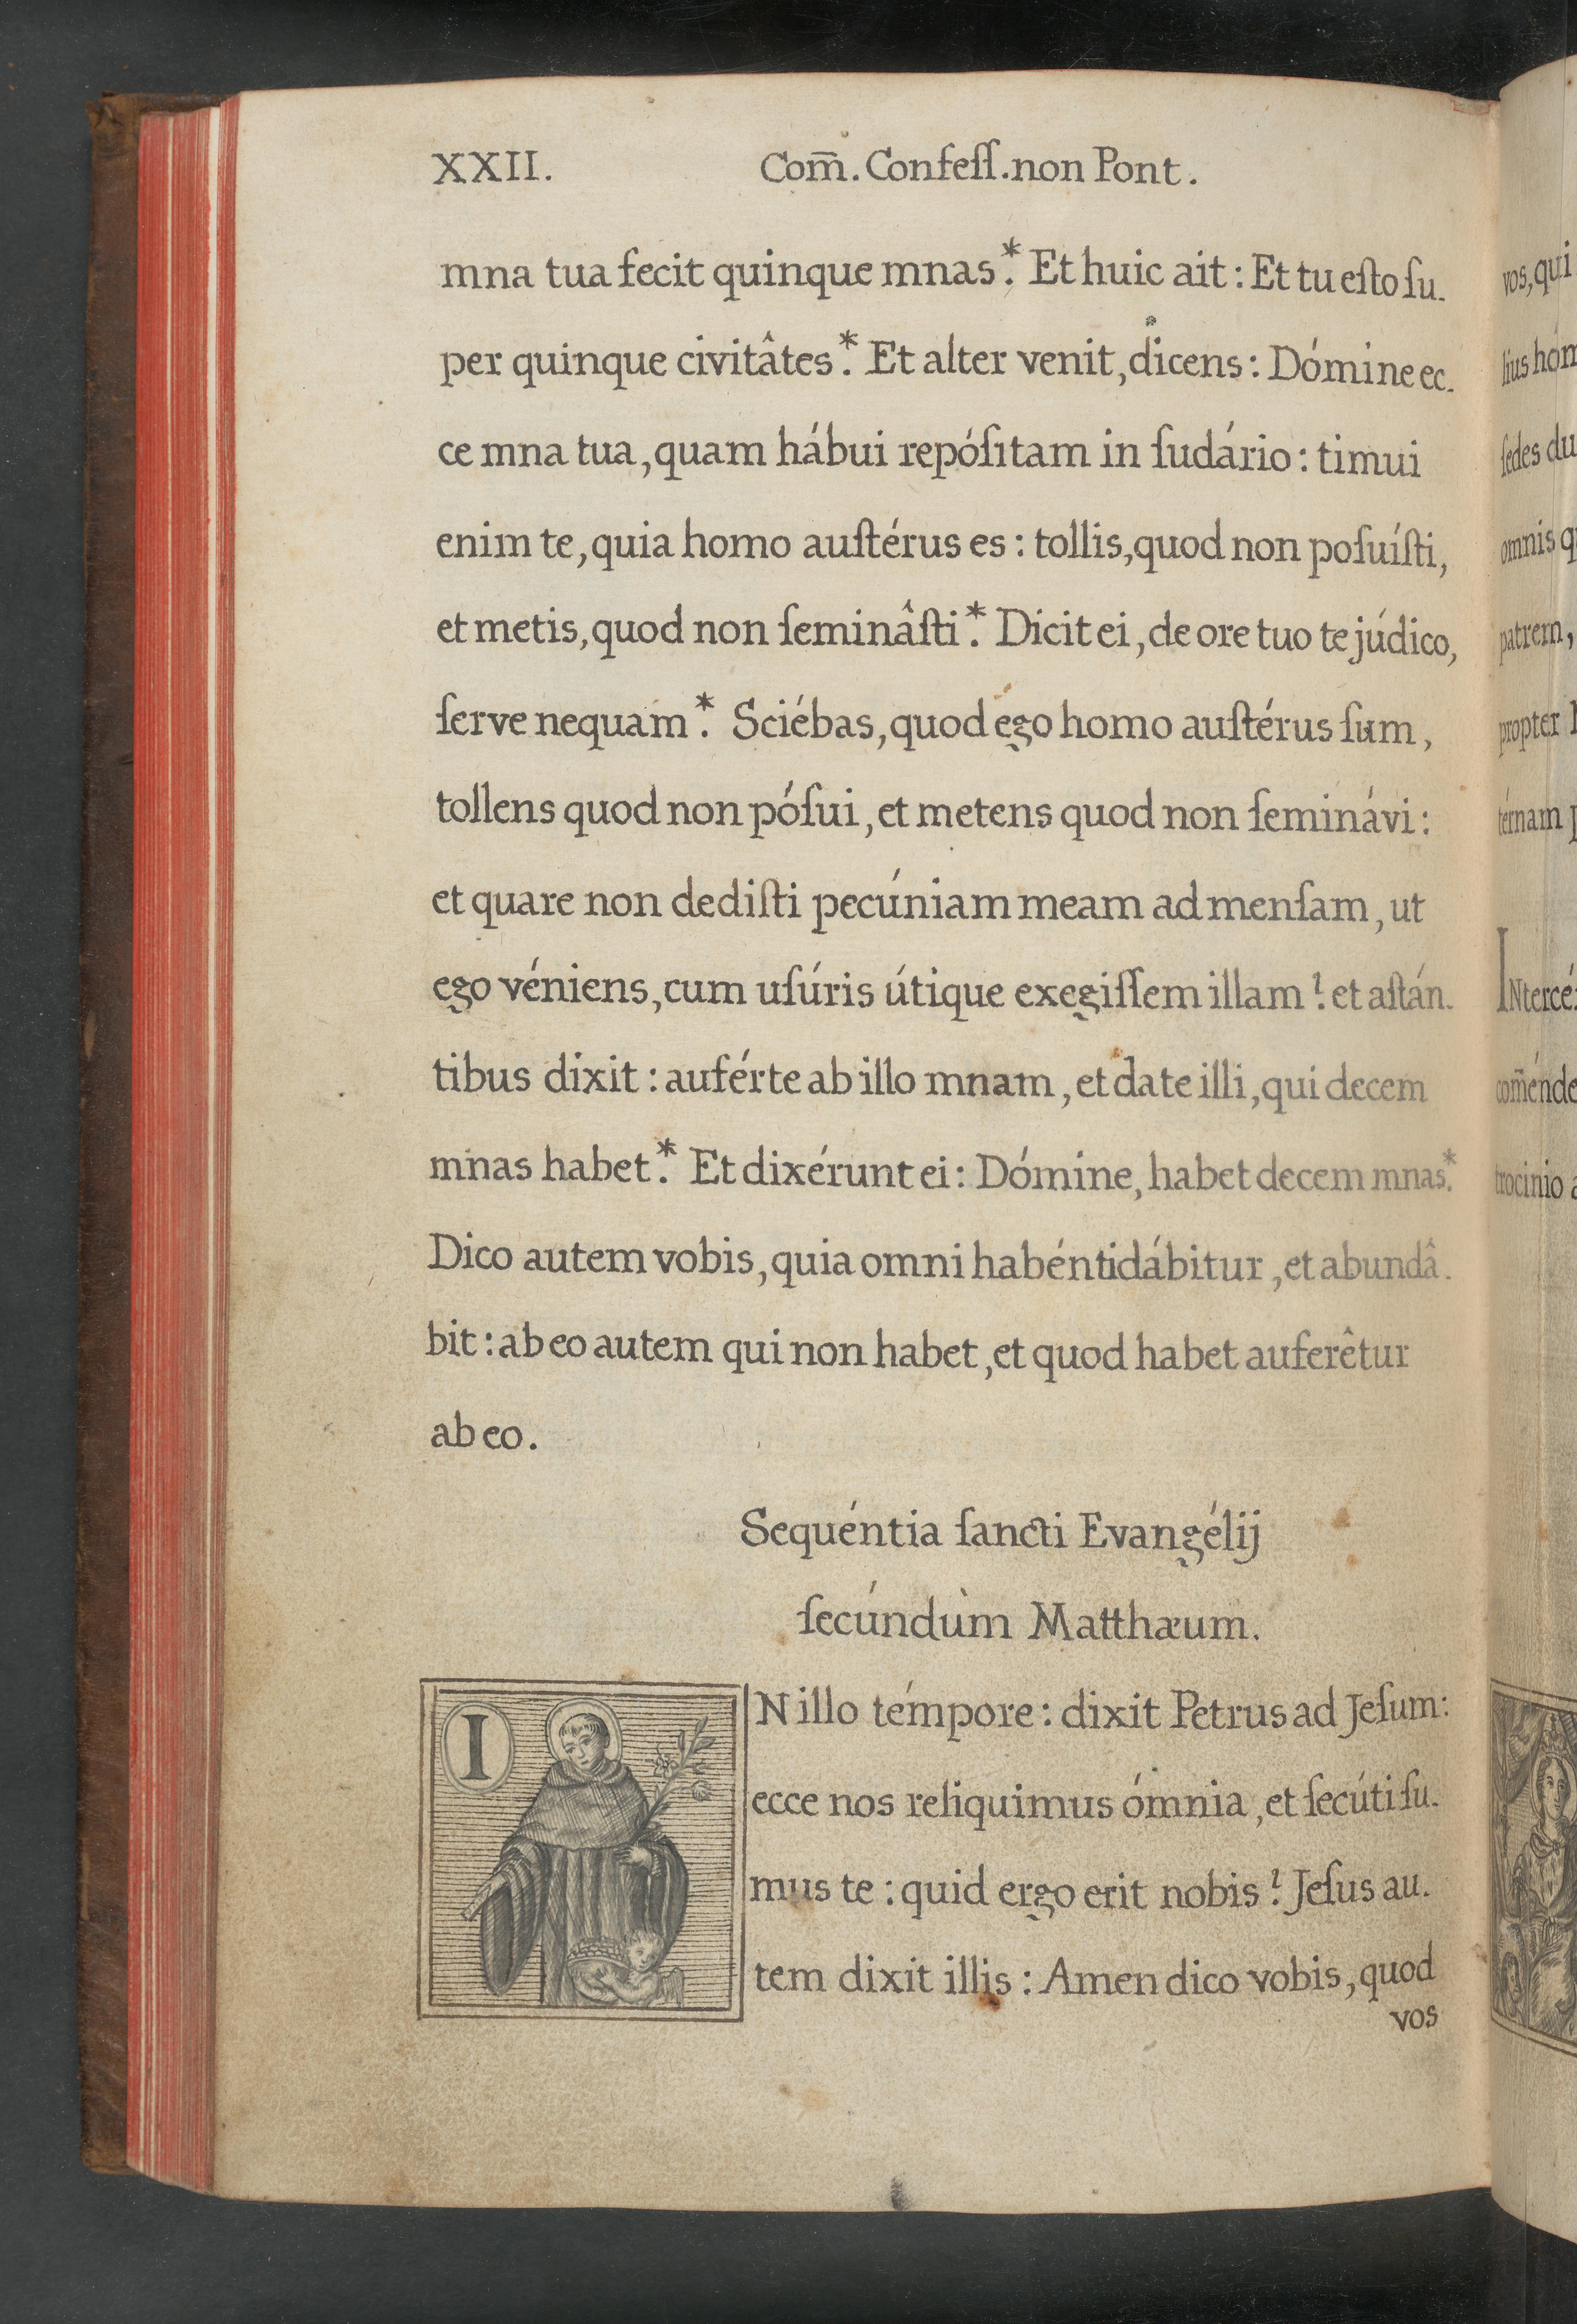 XXII. Com̄. Confeſſ. non Pont.
mna tua fecit quinque mnas.* Et huic ait: Et tu eſto ſu-
per quinque civitâtes.* Et alter venit, dicens: Dómine ec-
ce mna tua, quam hábui repóſitam in ſudário: timui
enim te, quia homo auſtérus es: tollis, quod non poſuíſti,
et metis, quod non ſeminâſti.* Dicit ei, de ore tuo te júdico,
ſerve nequam.* Sciébas, quod égo homo auſtérus ſum,
tollens quod non póſui, et metens quod non ſeminávi:
et quare non dediſti pecúniam meam ad menſam, ut
ego véniens, cum uſúris útique exegiſſem illam? et aſtán-
tibus dixit: auférte ab illo mnam, et date illi, qui decem
mnas habet.* Et dixérunt ei: Dómine, habet decem mnas.*
Dico autem vobis, quia omni habénti dábitur, et abundâ-
bit: ab eo autem qui non habet, et quod habet auferêtur
ab eo.
Sequéntia ſancti Evangélij
ſecúndùm Matthæum.
IN illo témpore: dixit Petrus ad Jeſum:
ecce nos reliquimus ómnia, et ſecúti ſu-
mus te: quid ergo erit nobis? Jeſus au-
tem dixit illis: Amen dico vobis, quod
vos
vos, qui
ſedes du
omnis
patrem,
propter
térnam
INtercé
com̄énde
trocinio